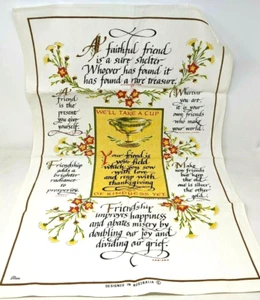 A faithful friend
is a sure shelter
Whoever has found it
has found a rare treasure.
A
friend
is the
present
you give
yourself.
Wherever
you are, it
is your
own friends
who make
your world
WE'LL TAKE A CUP
Your friend is
your field
which you sow
with love
and reap with
thanksgiving
OF KINDNESS YET
Friendship
adds a
brighter
radiance
to
prosperity
Make new
friends
but keep
the old
one is silver,
the other
gold.
Friendship
improves happiness
and abates misery by
doubling our joy and
dividing our grief.
DESIGNED IN AUSTRALIA ©